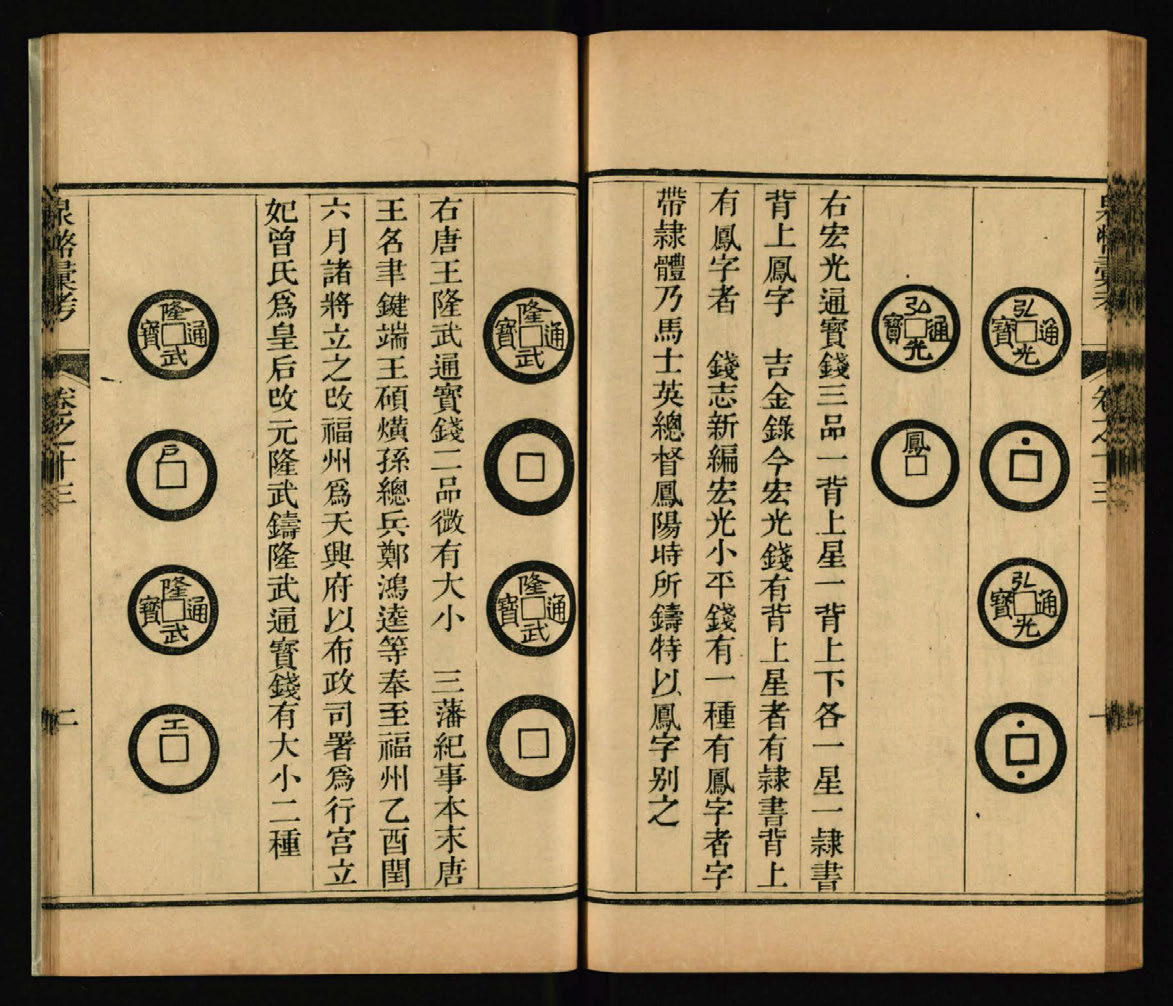 弘光通寶
弘光通寶
弘光通寶
鳳
右宏光通寶錢三品一背上星一背上下各一星一隷書
背上鳳字　吉金錄今宏光錢有背上星者有隷書背上
有鳳字者　錢志新編宏光小平錢有一種有鳳字者字
帶隷體乃馬士英總督鳳陽時所鑄特以鳳字别之
卷之十三
一
隆武通寶
隆武通寶
右唐王隆武通寶錢二品微有大小　三藩紀事本末唐
王名聿鍵端王碩熿孫總兵鄭鴻逵等奉至福州乙酉閏
六月諸將立之改福州爲天興府以布政司署爲行宫立
妃曾氏爲皇后改元隆武鑄隆武通寳錢有大小二種
隆武通寶
戸
隆武通寶
工
泉略彙考
卷之十三
二